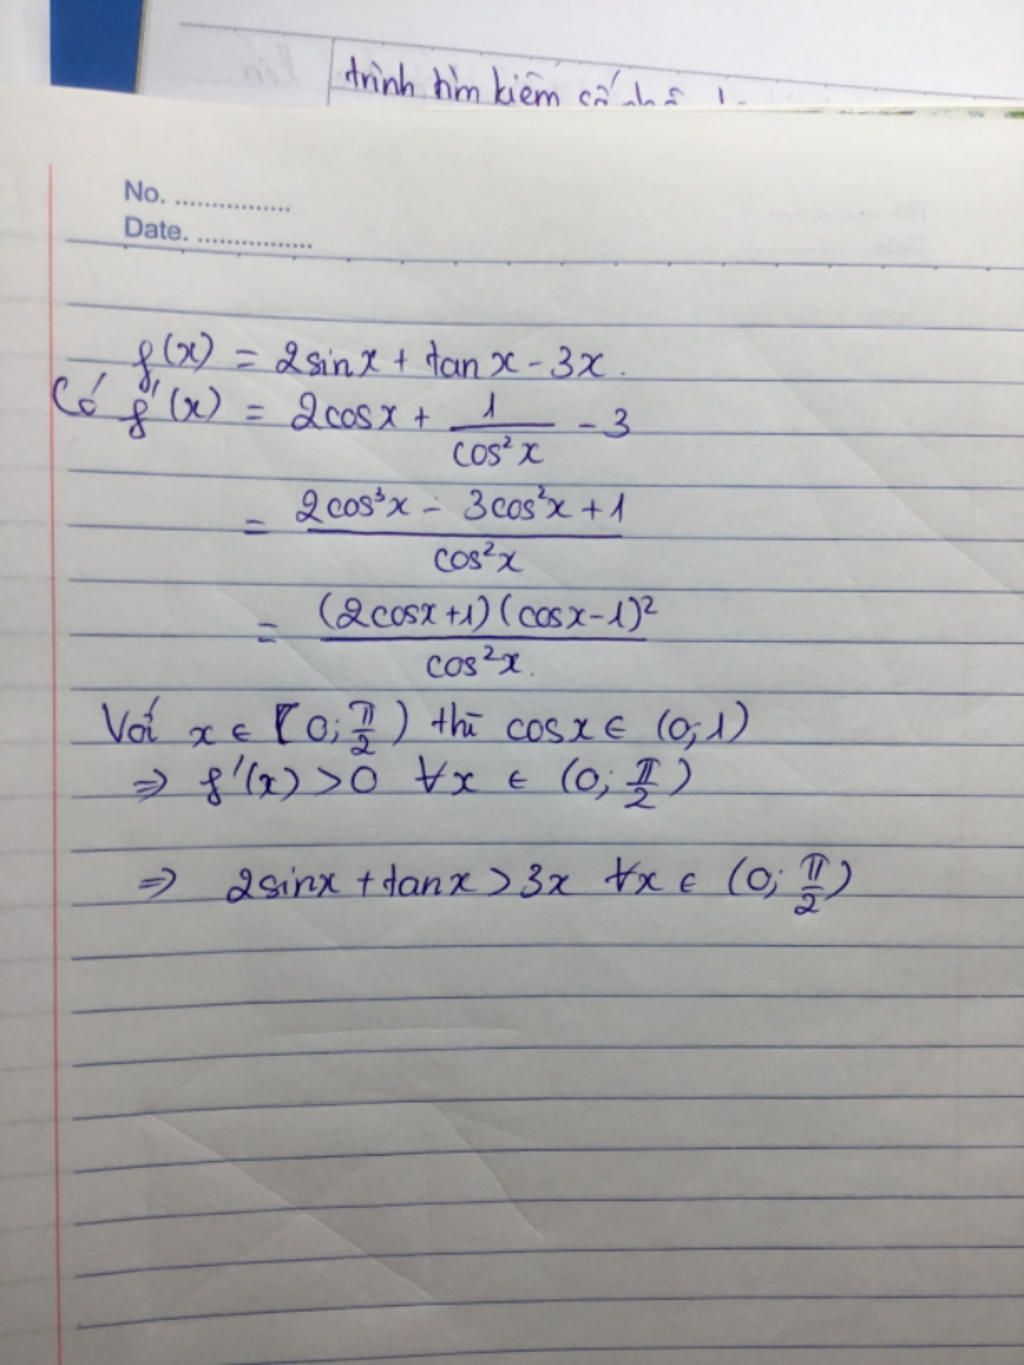 trình tìm kiếm
No. ................
Date. ................
f(x) = 2sinx + tanx - 3x.
Có f'(x) = 2cosx + 1/cos²x - 3
= (2cos³x - 3cos²x + 1)/cos²x
= (2cosx+1)(cosx-1)²/cos²x.
Với x ∈ [0; π/2) thì cosx ∈ (0;1)
⇒ f'(x) > 0 ∀x ∈ (0; π/2)
⇒ 2sinx + tanx > 3x ∀x ∈ (0; π/2)